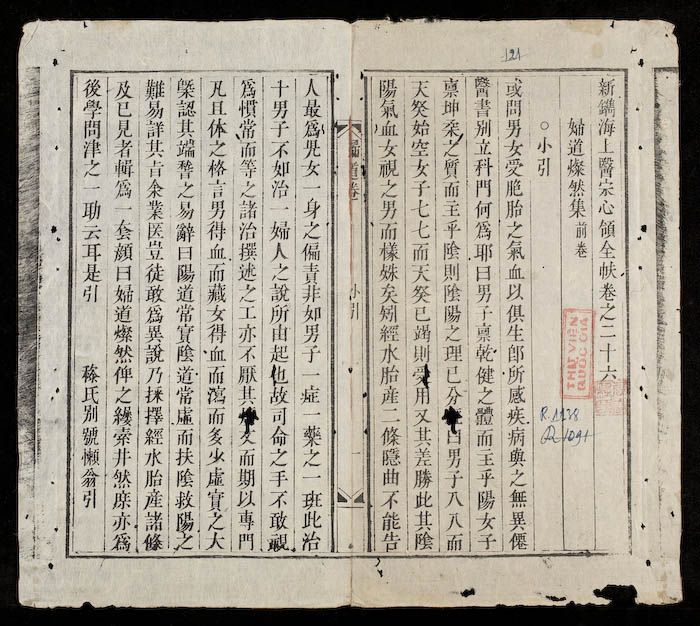 新鐫海上醫宗心領全帙卷之二十六
婦道燦然集前卷
○小引
或問男女受胞胎之氣血以俱生郎所感疾病與之無異僊
醫書別立科門何為耶曰男子禀乾健之體而主乎陽女子
禀坤柔之質而主乎陰則陰陽之理已分曰男子八八而
天癸始空女子七七而天癸已竭則受用又其差勝此其陰
陽氣血女視之男而樣姝矣矧經水胎產二條隱曲不能告
婦道卷
小引
一
人最為旡女一身之偏責非如男子一症一藥之一班此治
十男子不如治一婦人之說所由起也故司命之手不敢視
為慣常而等之諸治撰述之工亦不厭其文而期以專門
凡且体之格言男得血而藏女得血而瀉而多少虛實之大
槩認其端瞀之易辭曰陽道常實陰道常虛而扶陰救陽之
難易詳其旨余業医豈徒敢為異說乃採擇經水胎產諸條
及已見者輯為一套顔曰婦道燦然俾之縷索井然庶亦為
後學問津之一助云耳是引
𣜰氏別號懶翁引
THƯ VIỆN
QUỐC GIA
R.1138
121